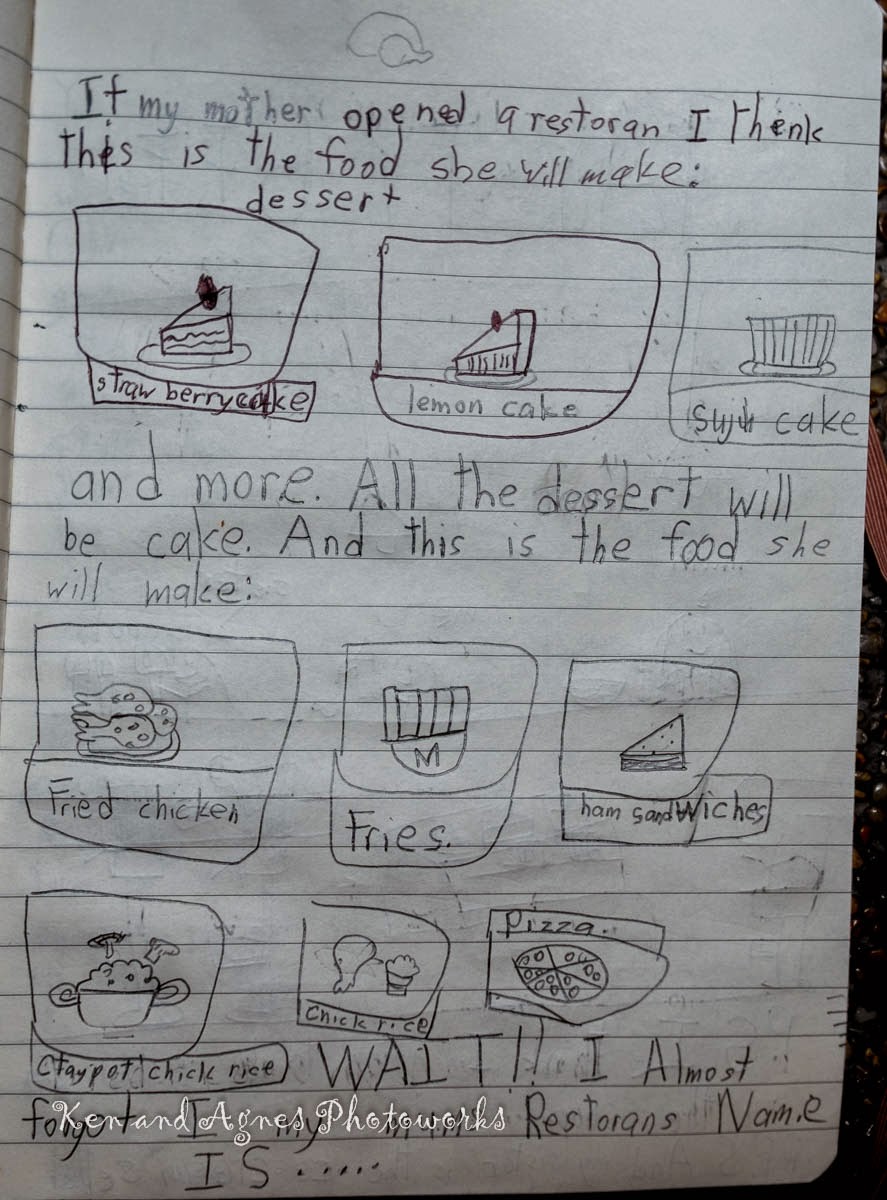 If my mother opened a restoran I thenk
thes is the food she will make:
dessert
strawberry cake
lemon cake
cake
and more. All the dessert will
be cake. And this is the food she
will make:
Fried chicken
Fries.
M
ham sandwiches
Pizza.
Chick rice
Claypot chick rice
WAIT!! I Almost
forget I my Restorans Name
Ken and Agnes Photoworks
IS .....